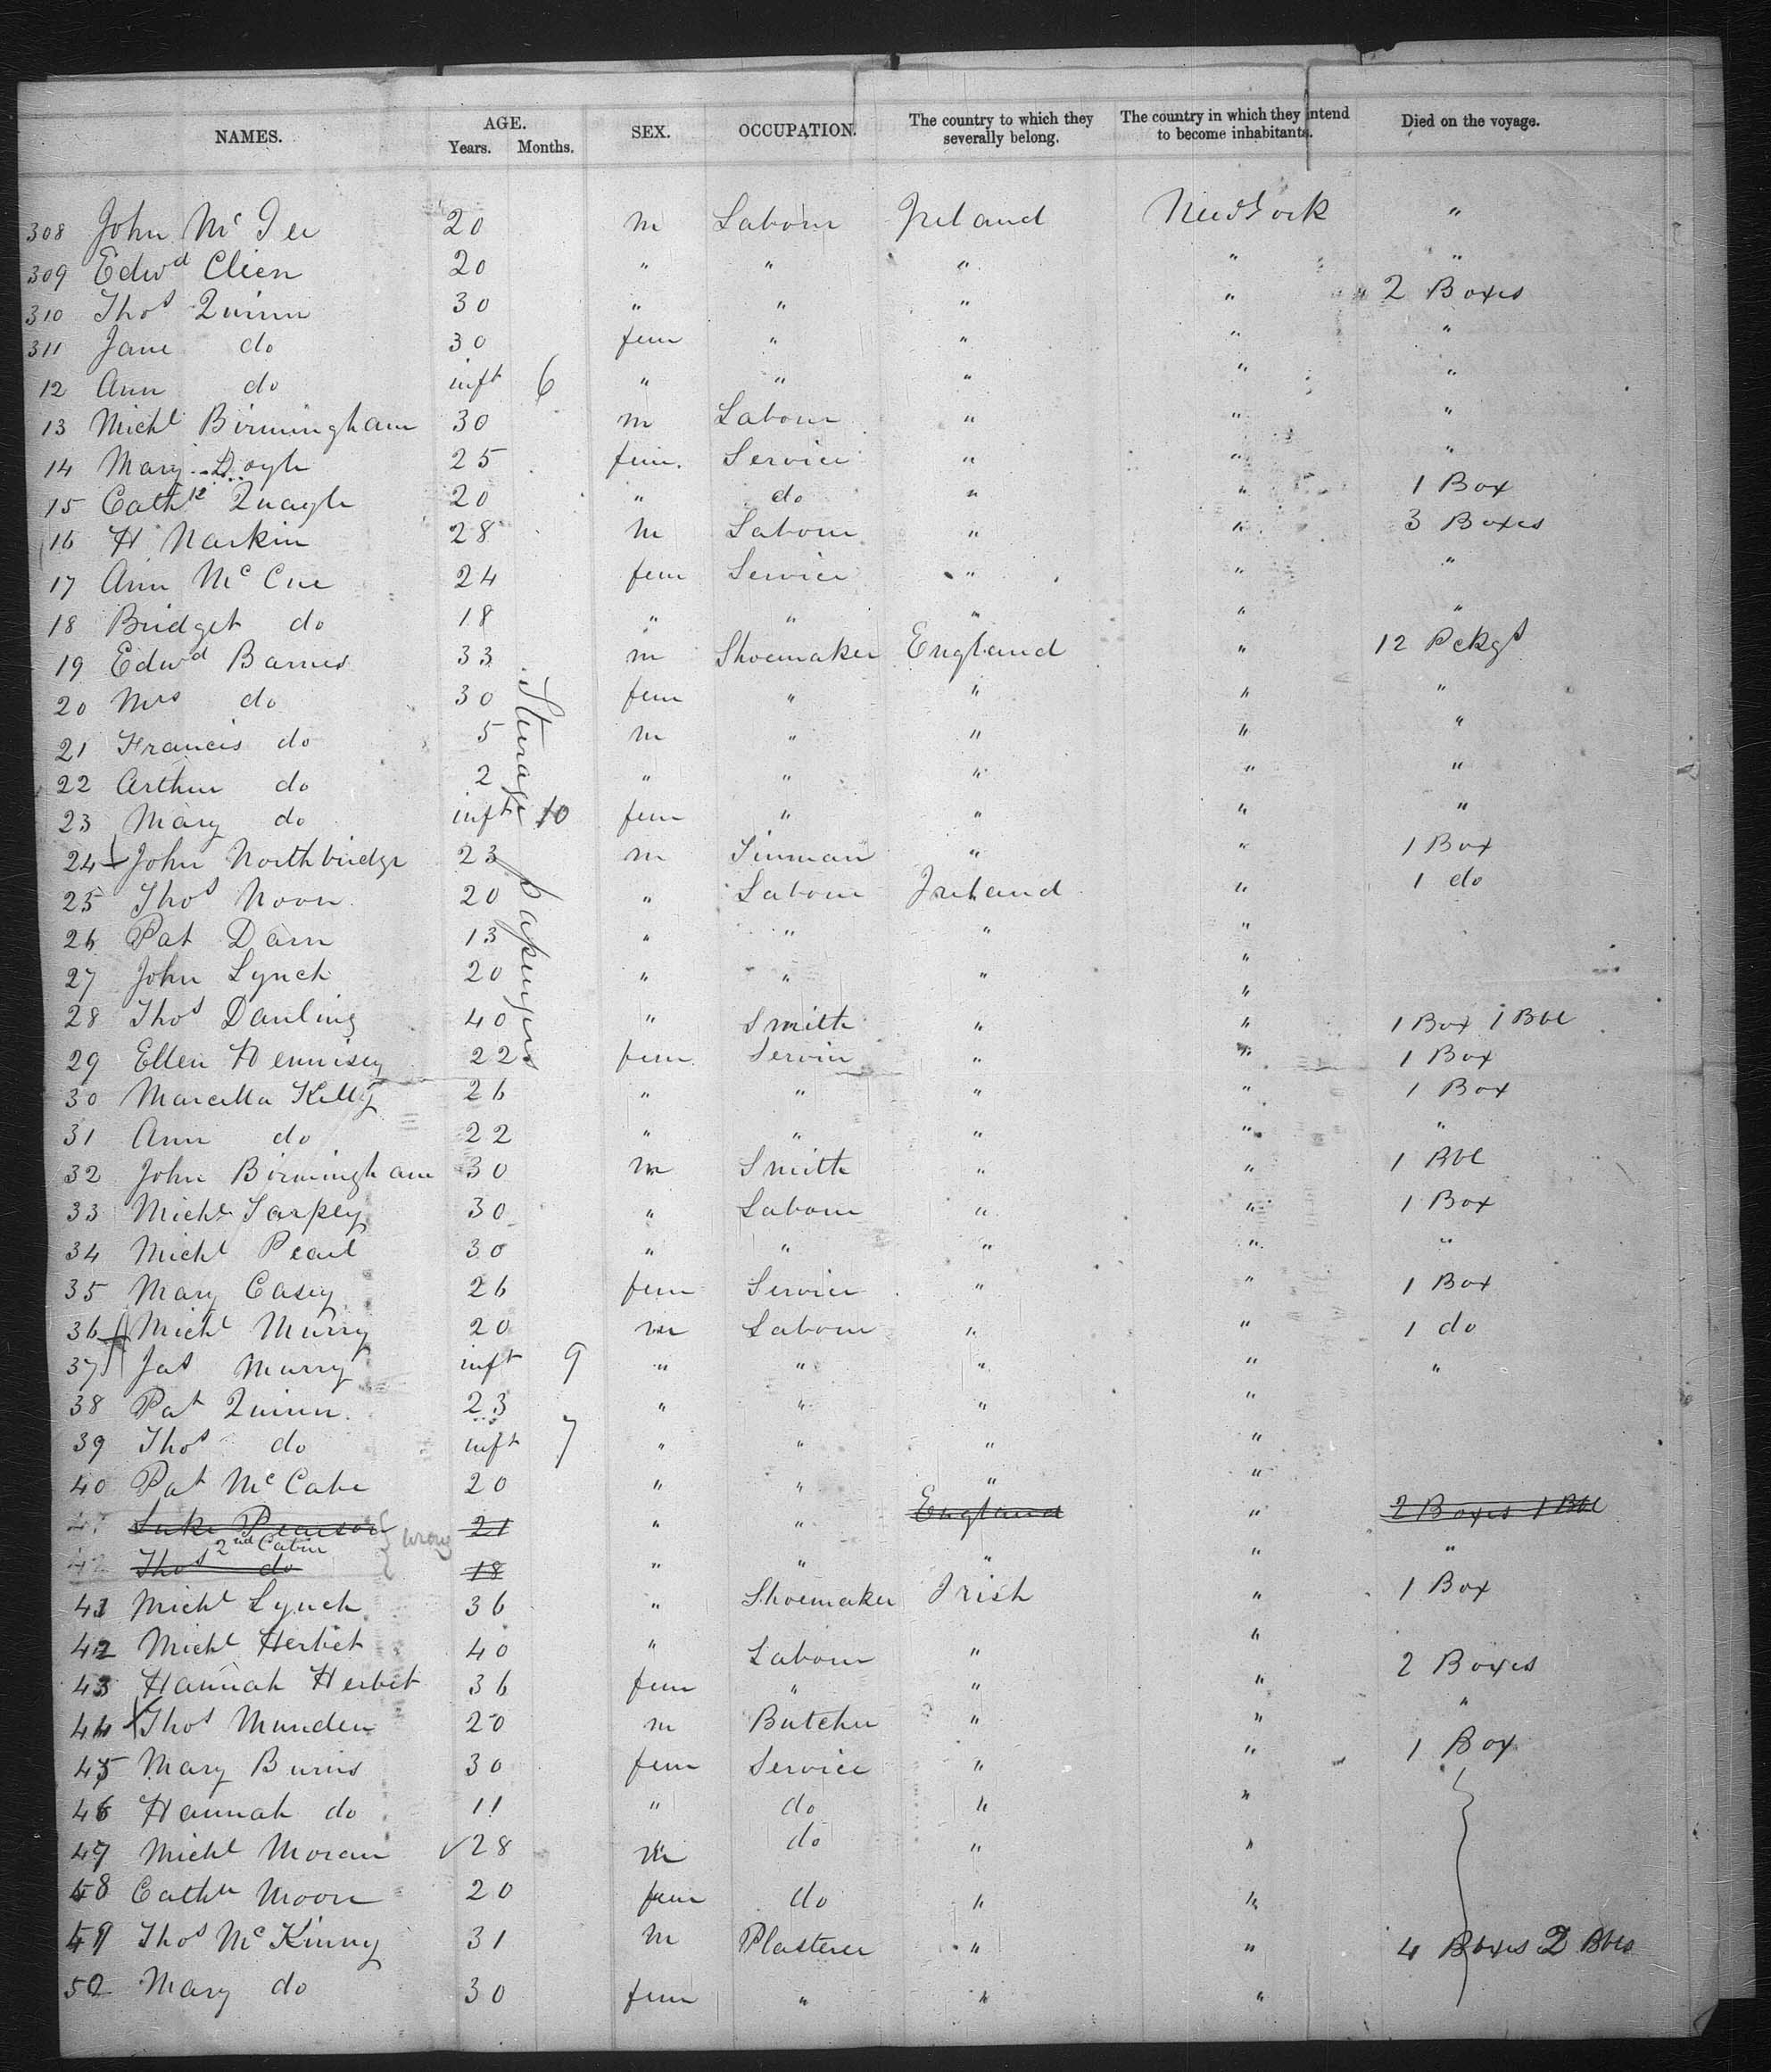 NAMES. AGE. Years. Months. SEX. OCCUPATION. The country to which they severally belong. The country in which they intend to become inhabitants. Died on the voyage.
308 John McGee 20 m Labour Ireland New York "
309 Edwd Clien 20 " " " " "
310 Thos Quinn 30 " " " " " 2 Boxes
311 Jane do 30 fem " " " "
12 Ann do inft 6 " " " " "
13 Michl Birmingham 30 m Labour " " "
14 Mary Doyle 25 fem. Service " " "
15 Cathe Quagle 20 " do " " 1 Box
16 H Narkin 28 m Labour " " 3 Boxes
17 Ann McCue 24 fem Service " " "
18 Bridget do 18 " " " " "
19 Edwd Barnes 33 m Shoemaker England " 12 Pckgs
20 Mrs do 30 fem " " " "
21 Francis do 5 m " " " "
22 Arthur do 2 " " " " "
23 Mary do inft 10 fem " " " "
Steerage passengers
24 John Northbridge 23 m Tinman " " 1 Box
25 Thos Noon 20 " Labour Ireland " 1 do
26 Pat Dam 13 " " " "
27 John Lynch 20 " " " "
28 Thos Danling 40 " Smith " " 1 Box 1 Bbl
29 Ellen Hennisey 22 fem Servic " " 1 Box
30 Marcella Kelly 26 " " " " 1 Box
31 Ann do 22 " " " " "
32 John Birmingham 30 m Smith " " 1 Bbl
33 Michl Tarpey 30 " Labour " " 1 Box
34 Michl Pearl 30 " " " " "
35 Mary Casey 26 fem Service " " 1 Box
36 Michl Murry 20 m Labour " " 1 do
37 Jas Murry inft 9 " " " " "
38 Pat Quinn. 23 " " " "
39 Thos do inft 7 " " " "
40 Pat McCabe 20 " " " "
Luke Pearson 21 " " England " 2 Boxes 1 Bbl
2nd Cabin wrong
42 Thos do 18 " " " " "
41 Michl Lynch 36 " Shoemaker Irish " 1 Box
42 Michl Herbet 40 " Labour " "
43 Hannah Herbet 36 fem " " " 2 Boxes
44 Thos Munden 20 m Butcher " " "
45 Mary Burns 30 fem Service " " 1 Box
46 Hannah do 11 " do " "
47 Michl Moran 28 m do " "
48 Cathe Moon 20 fem do " "
49 Thos McKinny 31 m Plasterer " " 4 Boxes 2 Bbls
50 Mary do 30 fem " " "